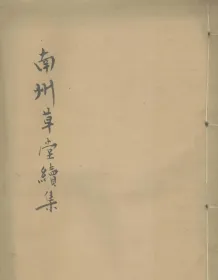 南州草堂續集